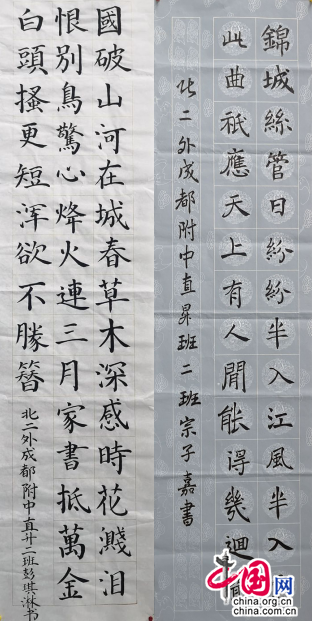 國破山河在城春草木深感時花濺泪
恨别鳥驚心烽火連三月家書抵萬金
白頭搔更短浑欲不勝簪
北二外成都附中直升二班彭琪淋书
錦城絲管日紛紛半入江風半入
此曲衹應天上有人間能得幾迴
北二外成都附中直昇班二班宗子嘉書
中国网
china.org.cn
china.com.cn